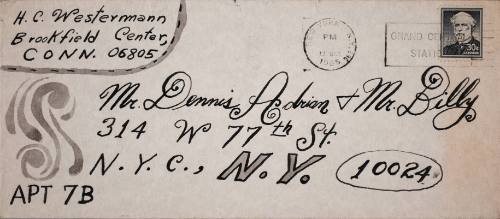 H. C. Westermann
Brookfield Center,
CONN. 06805
PM
1965
GRAND CENTRAL
STATION
30¢
Mr. Dennis Adrian & Mr. Billy
314 W 77th St.
N.Y.C., N.Y. 10024
APT 7B